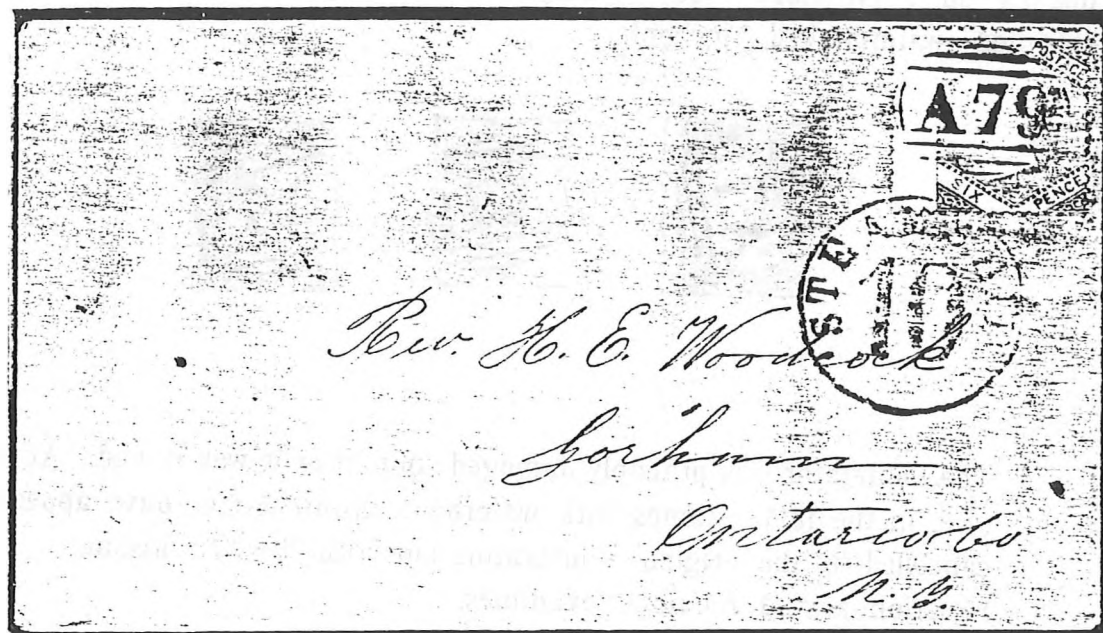 POSTAGE
A79
SIX PENCE
STEAMSHIP
10
Rev. H. E. Woodcock
Gorham
Ontario Co
N. Y.